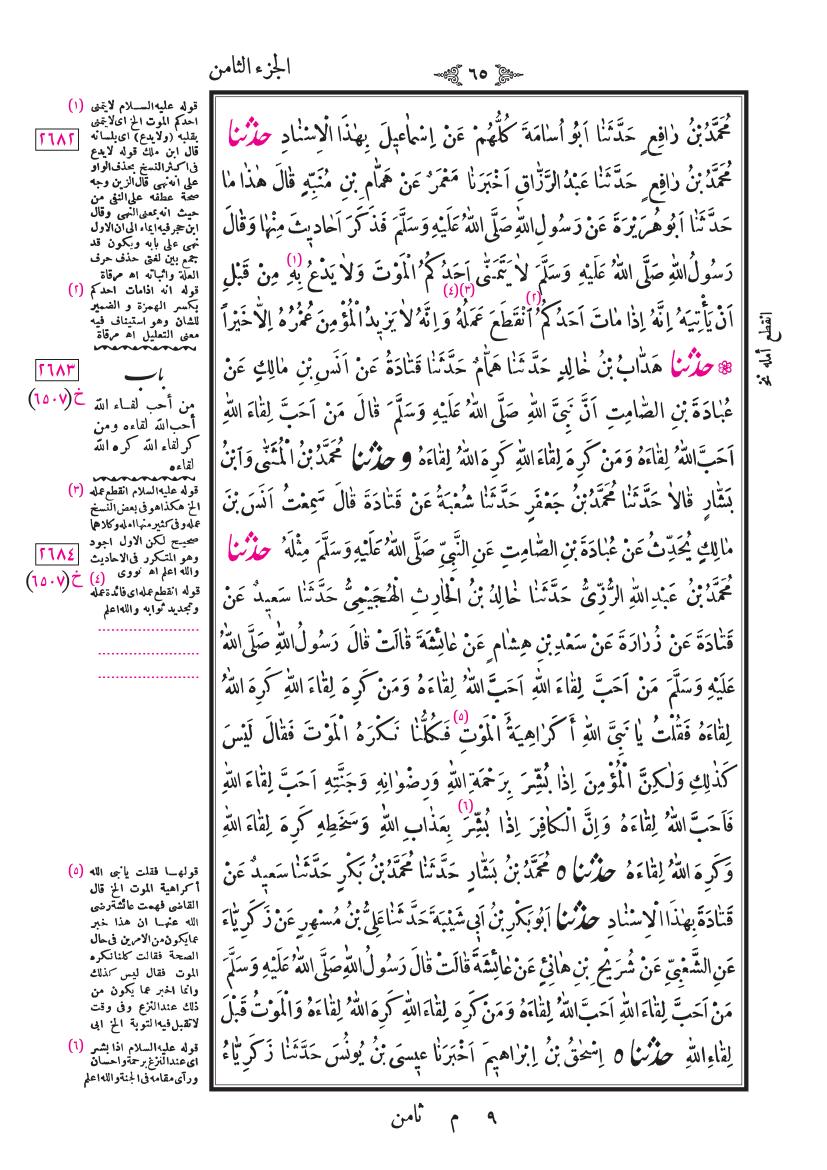 ٦٥
الجزء الثامن
مُحَمَّدُ بْنُ رَافِعٍ حَدَّثَنَا اَبُو اُسَامَةَ كُلُّهُمْ عَنْ اِسْمَاعِيلَ بِهٰذَا الْاِسْنَادِ حدثنا
مُحَمَّدُ بْنُ رَافِعٍ حَدَّثَنَا عَبْدُ الرَّزَّاقِ اَخْبَرَنَا مَعْمَرٌ عَنْ هَمَّامِ بْنِ مُنَبِّهٍ قَالَ هٰذَا مَا
حَدَّثَنَا اَبُو هُرَيْرَةَ عَنْ رَسُولِ اللهِ صَلَّى اللهُ عَلَيْهِ وَسَلَّمَ فَذَكَرَ اَحَادِيثَ مِنْهَا وَقَالَ
رَسُولُ اللهِ صَلَّى اللهُ عَلَيْهِ وَسَلَّمَ لَا يَتَمَنَّى اَحَدُكُمُ الْمَوْتَ وَلَا يَدْعُ بِهِ (١) مِنْ قَبْلِ
اَنْ يَأْتِيَهُ اِنَّهُ اِذَا مَاتَ اَحَدُكُمُ (٢) انْقَطَعَ عَمَلُهُ (٣)(٤) وَاِنَّهُ لَا يَزِيدُ الْمُؤْمِنَ عُمْرُهُ اِلَّا خَيْراً
حدثنا هَدَّابُ بْنُ خَالِدٍ حَدَّثَنَا هَمَّامٌ حَدَّثَنَا قَتَادَةُ عَنْ اَنَسِ بْنِ مَالِكٍ عَنْ
عُبَادَةَ بْنِ الصَّامِتِ اَنَّ نَبِيَّ اللهِ صَلَّى اللهُ عَلَيْهِ وَسَلَّمَ قَالَ مَنْ اَحَبَّ لِقَاءَ اللهِ
اَحَبَّ اللهُ لِقَاءَهُ وَمَنْ كَرِهَ لِقَاءَ اللهِ كَرِهَ اللهُ لِقَاءَهُ وحدثنا مُحَمَّدُ بْنُ الْمُثَنَّى وَابْنُ
بَشَّارٍ قَالَا حَدَّثَنَا مُحَمَّدُ بْنُ جَعْفَرٍ حَدَّثَنَا شُعْبَةُ عَنْ قَتَادَةَ قَالَ سَمِعْتُ اَنَسَ بْنَ
مَالِكٍ يُحَدِّثُ عَنْ عُبَادَةَ بْنِ الصَّامِتِ عَنِ النَّبِيِّ صَلَّى اللهُ عَلَيْهِ وَسَلَّمَ مِثْلَهُ حدثنا
مُحَمَّدُ بْنُ عَبْدِ اللهِ الرُّزِّىُّ حَدَّثَنَا خَالِدُ بْنُ الْحَارِثِ الْهُجَيْمِىُّ حَدَّثَنَا سَعِيدٌ عَنْ
قَتَادَةَ عَنْ زُرَارَةَ عَنْ سَعْدِ بْنِ هِشَامٍ عَنْ عَائِشَةَ قَالَتْ قَالَ رَسُولُ اللهِ صَلَّى اللهُ
عَلَيْهِ وَسَلَّمَ مَنْ اَحَبَّ لِقَاءَ اللهِ اَحَبَّ اللهُ لِقَاءَهُ وَمَنْ كَرِهَ لِقَاءَ اللهِ كَرِهَ اللهُ
لِقَاءَهُ فَقُلْتُ يَا نَبِيَّ اللهِ أَكَرَاهِيَةُ الْمَوْتِ (٥) فَكُلُّنَا نَكْرَهُ الْمَوْتَ فَقَالَ لَيْسَ
كَذٰلِكِ وَلٰكِنَّ الْمُؤْمِنَ اِذَا بُشِّرَ بِرَحْمَةِ اللهِ وَرِضْوَانِهِ وَجَنَّتِهِ اَحَبَّ لِقَاءَ اللهِ
فَاَحَبَّ اللهُ لِقَاءَهُ وَاِنَّ الْكَافِرَ اِذَا بُشِّرَ (٦) بِعَذَابِ اللهِ وَسَخَطِهِ كَرِهَ لِقَاءَ اللهِ
وَكَرِهَ اللهُ لِقَاءَهُ حدثناه مُحَمَّدُ بْنُ بَشَّارٍ حَدَّثَنَا مُحَمَّدُ بْنُ بَكْرٍ حَدَّثَنَا سَعِيدٌ عَنْ
قَتَادَةَ بِهٰذَا الْاِسْنَادِ حدثنا اَبُو بَكْرِ بْنُ اَبِى شَيْبَةَ حَدَّثَنَا عَلِىُّ بْنُ مُسْهِرٍ عَنْ زَكَرِيَّاءَ
عَنِ الشَّعْبِىِّ عَنْ شُرَيْحِ بْنِ هَانِئٍ عَنْ عَائِشَةَ قَالَتْ قَالَ رَسُولُ اللهِ صَلَّى اللهُ عَلَيْهِ وَسَلَّمَ
مَنْ اَحَبَّ لِقَاءَ اللهِ اَحَبَّ اللهُ لِقَاءَهُ وَمَنْ كَرِهَ لِقَاءَ اللهِ كَرِهَ اللهُ لِقَاءَهُ وَالْمَوْتُ قَبْلَ
لِقَاءِ اللهِ حدثناه اِسْحٰقُ بْنُ اِبْرَاهِيمَ اَخْبَرَنَا عِيسَى بْنُ يُونُسَ حَدَّثَنَا زَكَرِيَّاءُ
انقطع أمله نخ
(١) قوله عليه السلام لا يتمنى
احدكم الموت الخ اى لا يتمنى
بقلبه (ولا يدع) اى بلسانه
قال ابن ملك قوله لا يدع
فى اكثر النسخ بحذف الواو
على انه نهى قال الزين وجه
صحة عطفه على النفى من
حيث انه بمعنى النهى وقال
ابن حجر فيه ايماء الى ان الاول
نهى على بابه ويكون قد
جمع بين لغتى حذف حرف
العلة واثباته اه مرقاة
(٢) قوله انه اذا مات احدكم
بكسر الهمزة و الضمير
للشان وهو استيناف فيه
معنى التعليل اه مرقاة
باب
من أحب لقاء الله
أحب الله لقاءه ومن
كره لقاء الله كره الله
لقاءه
(٣) قوله عليه السلام انقطع عمله
الخ هكذا هو فى بعض النسخ
عمله وفى كثير منها امله وكلاهما
صحيح لكن الاول اجود
وهو المتكرر فى الاحاديث
والله اعلم اه نووى (٤)
قوله انقطع عمله اى فائدة عمله
وتجديد ثوابه والله اعلم
(٥) قولها فقلت يا نبى الله
أكراهية الموت الخ قال
القاضى فهمت عائشة رضى
الله عنها ان هذا خبر
عما يكون من الامرين فى حال
الصحة فقالت كلنا نكره
الموت فقال ليس كذلك
وانما اخبر عما يكون من
ذلك عند النزع وفى وقت
لا تقبل فيه التوبة الخ ابى
(٦) قوله عليه السلام اذا بشر
اى عند النزع برحمة واحسان
ورأى مقامه فى الجنة والله اعلم
٢٦٨٢
٢٦٨٣
خ (٦٥٠٧)
٢٦٨٤
خ (٦٥٠٧)
٩ م ثامن